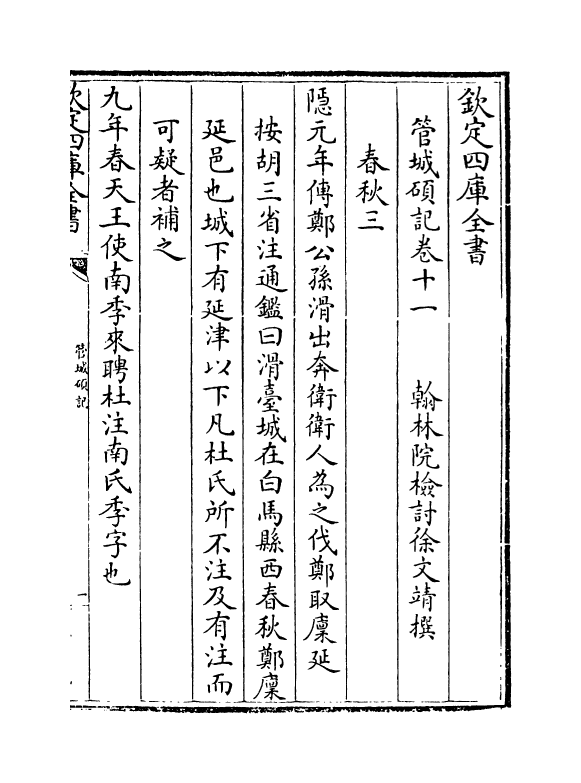 欽定四庫全書
管城碩記卷十一　翰林院檢討徐文靖撰
春秋三
隱元年傳鄭公孫滑出奔衛衛人為之伐鄭取廩延
按胡三省注通鑑曰滑臺城在白馬縣西春秋鄭廩
延邑也城下有延津以下凡杜氏所不注及有注而
可疑者補之
九年春天王使南季來聘杜注南氏季字也
欽定四庫全書
管城碩記
一